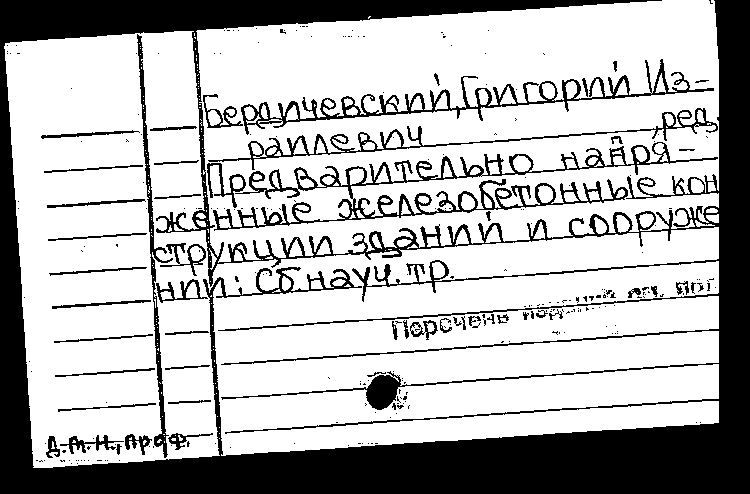 Бердичевский, Григорий Из-
раилевич ,ред.
Предварительно напря-
женные железобетонные кон
струкции зданий и сооруже
ний: Сб. науч. тр.
Перечень
Д.т.н., проф.